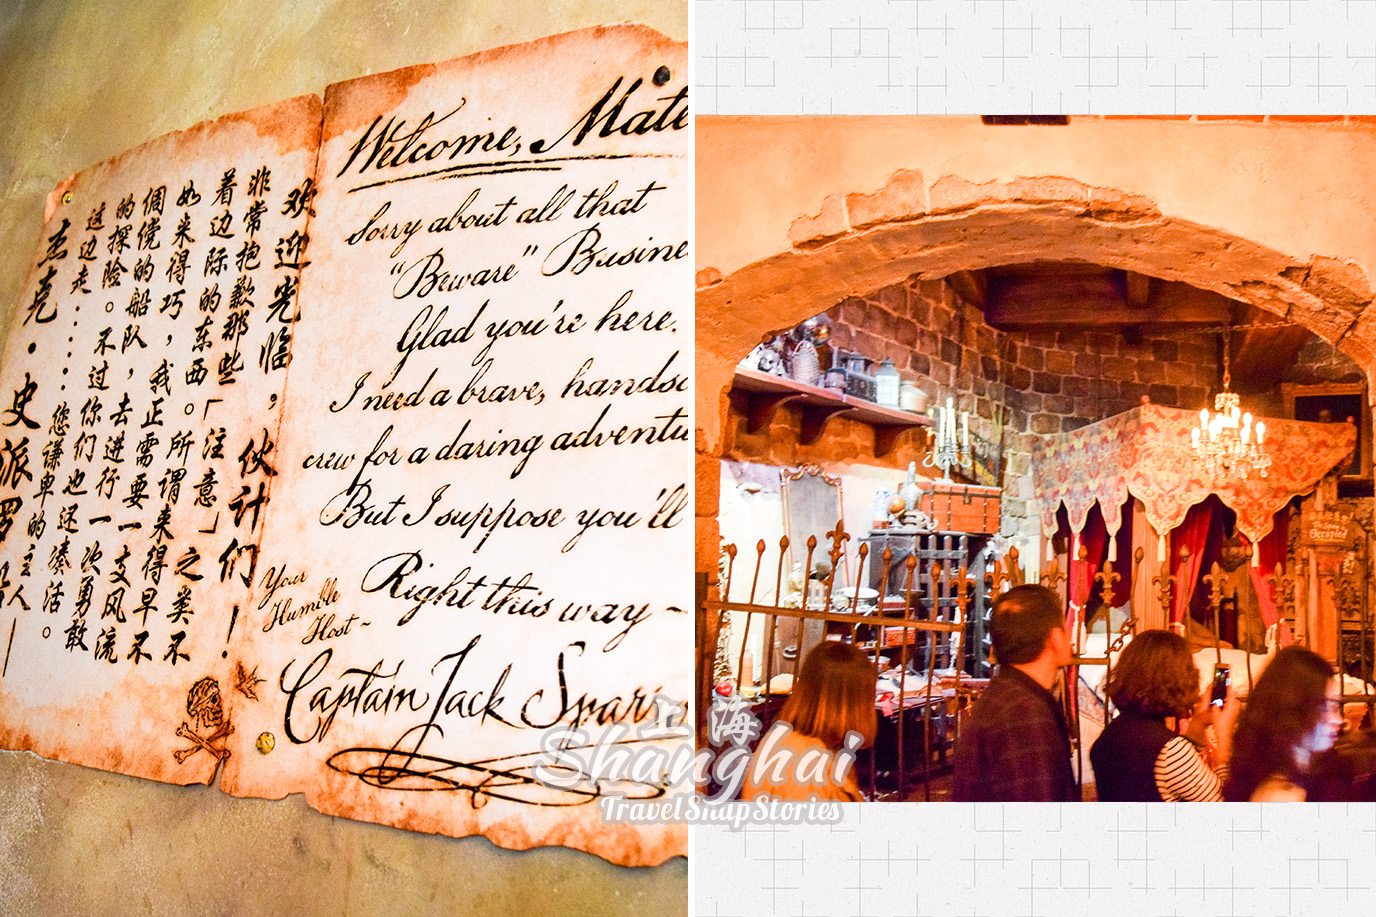 欢迎光临，伙计们！
非常抱歉那些「注意」之类不
着边际的东西。所谓来得早不
如来得巧，我正需要一支风流
倜傥的船队，去进行一次勇敢
的探险。不过你们也还凑活。
这边走……您谦卑的主人——
杰克·史派罗
Welcome, Mate
Sorry about all that
"Beware" Busine
Glad you're here.
I need a brave, handso
crew for a daring adventu
But I suppose you'll
Right this way –
Your
Humble
Host ~
Captain Jack Sparr
Occupied
上海
Shanghai
Travel Snap Stories